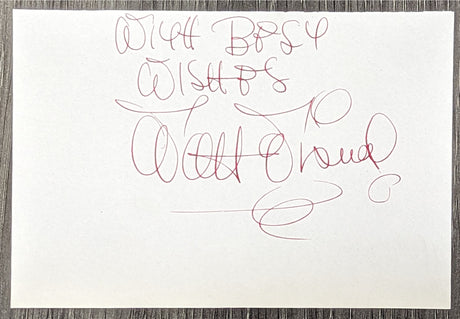 With Best
Wishes
Walt